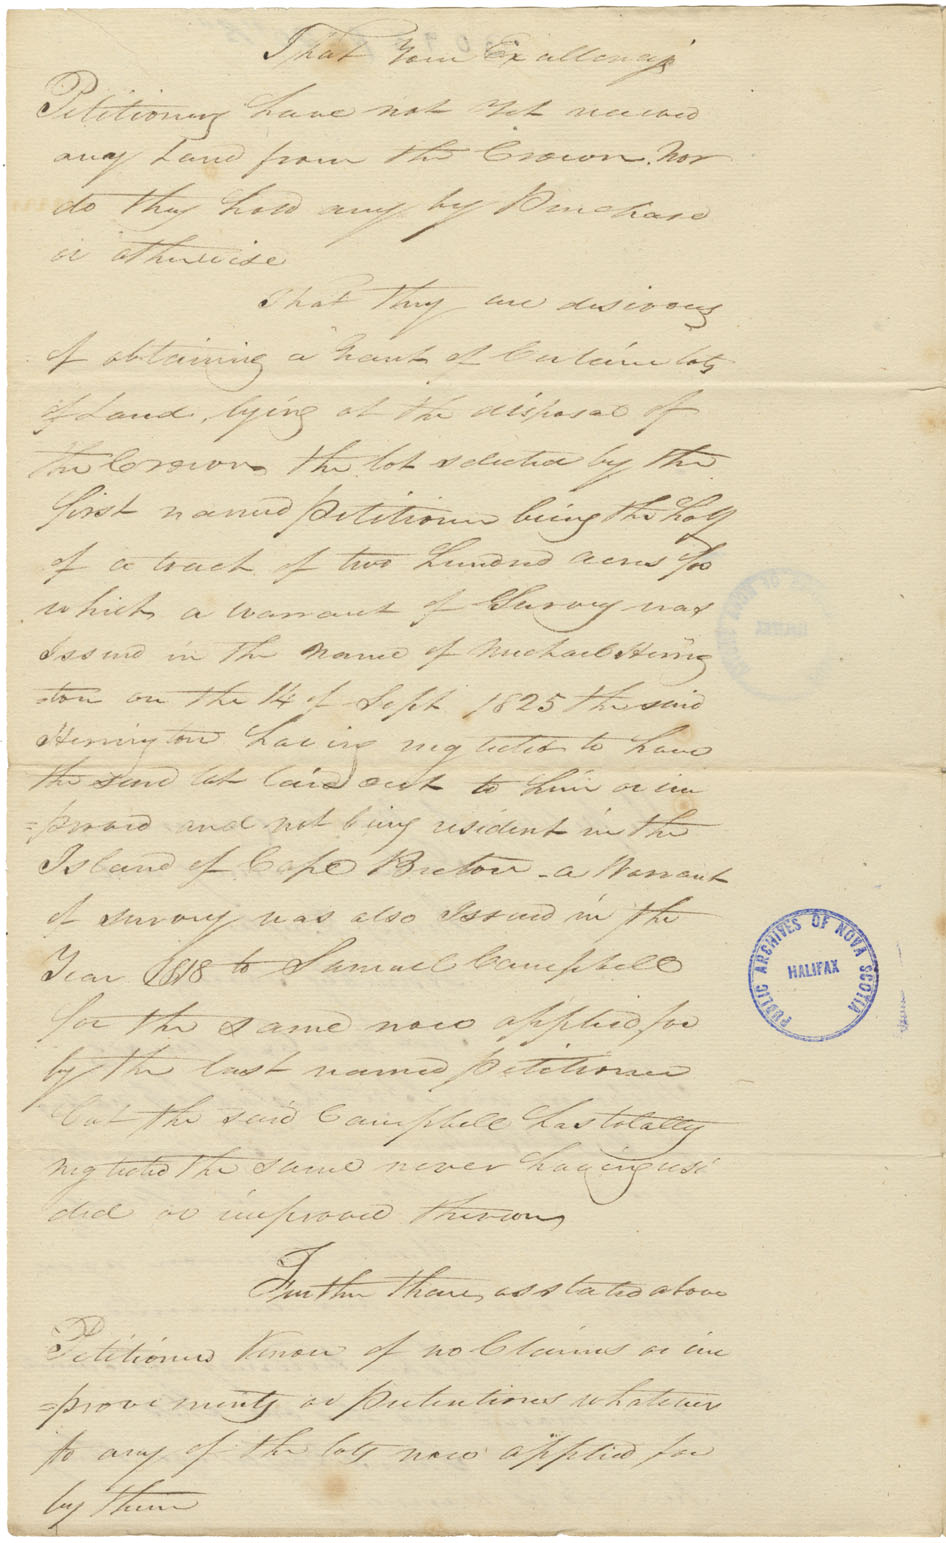 That Your Excellency's
Petitioners have not Yet received
any Land from the Crown. Nor
do they hold any by Purchase
or otherwise
That they are desirous
of obtaining a Grant of Certain lots
of Land, lying at the disposal of
the Crown, the lot selected by the
first named Petitioner being the half
of a tract of two hundred acres for
which a warrant of Survey was
Issued in the Name of Michael Hering
=ton on the 14 of Sept 1825 the said
Herrington having neglected to have
the said lot laid out to him or im
=proved and not being resident in the
Island of Cape Breton - a Warrant
of survey was also Issued in the
Year 1818 to Samuel Campbell
for the same now applied for
by the last named Petitioner
but the said Campbell has totally
neglected the same never having resi
ded or improved thereon,
Further than, as stated above
Petitioners Know of no Claims or im
=provements or pretentions whatever
to any of the lots now applied for
by them
PUBLIC ARCHIVES OF NOVA SCOTIA
HALIFAX